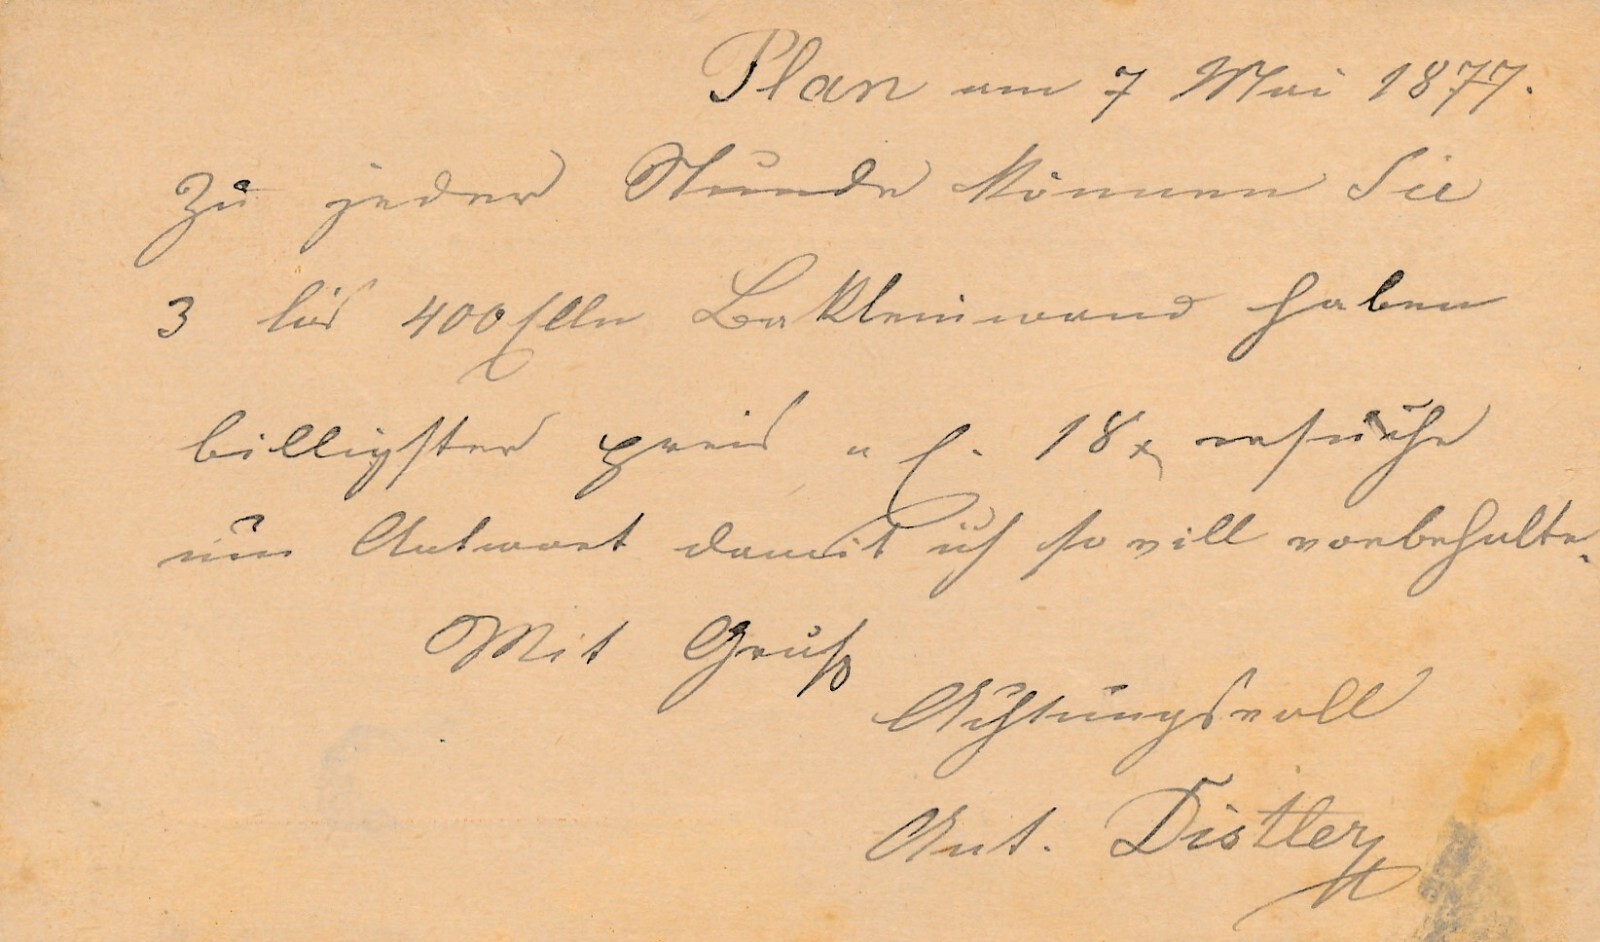 Plan am 7 Mai 1877.
Zu jeder Stunde können Sie
3 bis 400 Elln Bakleinwand haben
billigster preis a f. 18x ersuche
um Antwort damit ich so vill vorbehalte.
Mit Gruß
Achtungsvoll
Ant. Distler